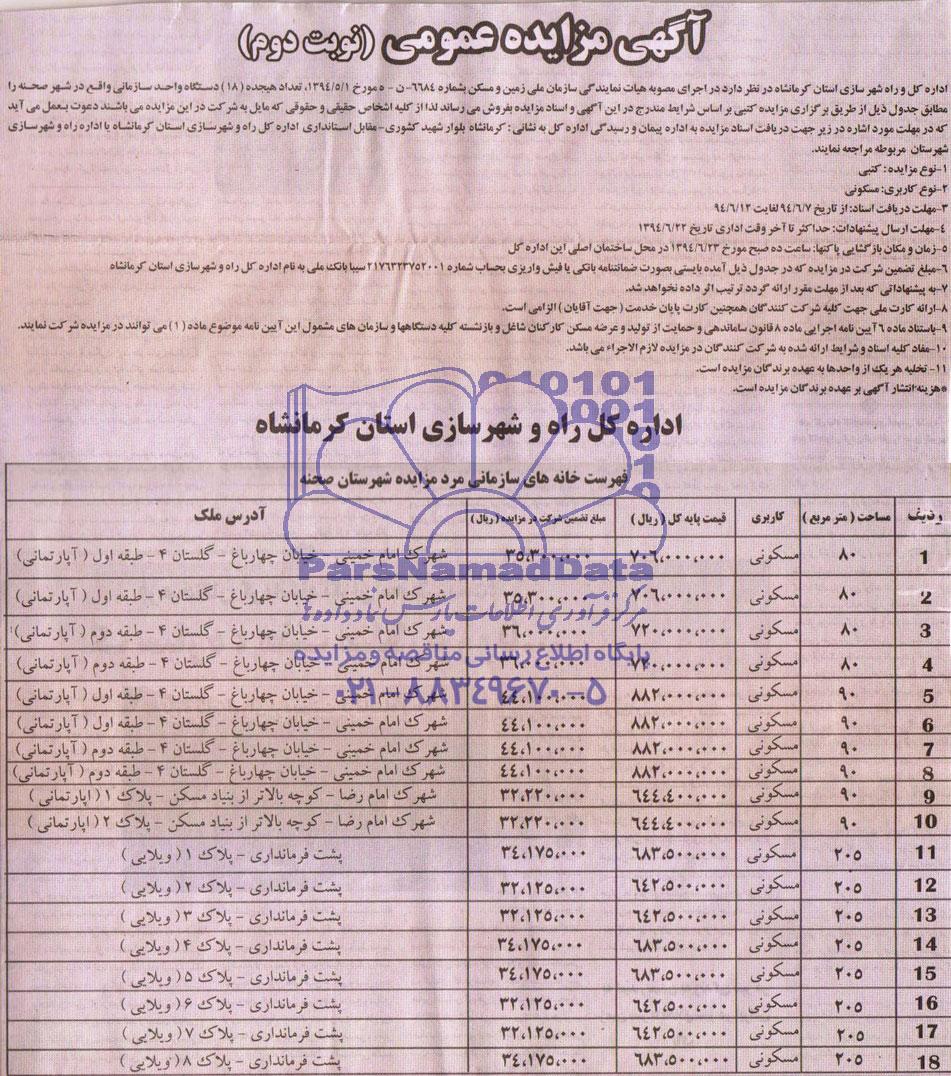 آگهی مزایده عمومی (نوبت دوم)
اداره کل و راه شهر سازی استان کرمانشاه در نظر دارد در اجرای مصوبه هیات نمایندگی سازمان ملی زمین و مسکن بشماره ۶۶۸۴- ن - ه مورخ ۱۳۹۴/۵/۱، تعداد هیجده (۱۸) دستگاه واحد سازمانی واقع در شهر صحنه را
مطابق جدول ذیل از طریق برگزاری مزایده کتبی بر اساس شرایط مندرج در این آگهی و اسناد مزایده بفروش می رساند لذا از کلیه اشخاص حقیقی و حقوقی که مایل به شرکت در این مزایده می باشند دعوت بعمل می آید
که در مهلت مورد اشاره در زیر جهت دریافت اسناد مزایده به اداره پیمان و رسیدگی اداره کل به نشانی : کرمانشاه بلوار شهید کشوری- مقابل استانداری اداره کل راه و شهرسازی استان کرمانشاه یا اداره راه و شهرسازی
شهرستان مربوطه مراجعه نمایند.
۱-نوع مزایده : کتبی
۲-نوع کاربری: مسکونی
۳-مهلت دریافت اسناد: از تاریخ ۹۴/۶/۷ لغایت ۹۴/۶/۱۲
۴-مهلت ارسال پیشنهادات: حداکثر تا آخر وقت اداری تاریخ ۱۳۹۴/۶/۲۲
۵-زمان و مکان بازگشایی پاکتها: ساعت ده صبح مورخ ۱۳۹۴/۶/۲۳ در محل ساختمان اصلی این اداره کل
۶-مبلغ تضمین شرکت در مزایده که در جدول ذیل آمده بایستی بصورت ضمانتنامه بانکی یا فیش واریزی بحساب شماره ۲۱۷۶۳۲۳۷۵۲۰۰۱ سیبا بانک ملی به نام اداره کل راه و شهرسازی استان کرمانشاه
۷-به پیشنهاداتی که بعد از مهلت مقرر ارائه گردد ترتیب اثر داده نخواهد شد.
۸-ارائه کارت ملی جهت کلیه شرکت کنندگان همچنین کارت پایان خدمت (جهت آقایان) الزامی است.
۹-باستناد ماده ۶ آیین نامه اجرایی ماده ۸ قانون ساماندهی و حمایت از تولید و عرضه مسکن کارکنان شاغل و بازنشسته کلیه دستگاهها و سازمان های مشمول این آیین نامه موضوع ماده (۱) می توانند در مزایده شرکت نمایند.
۱۰-مفاد کلیه اسناد و شرایط ارائه شده به شرکت کنندگان در مزایده لازم الاجراء می باشد.
۱۱- تخلیه هر یک از واحدها به عهده برندگان مزایده است.
*هزینه انتشار آگهی بر عهده برندگان مزایده است.
اداره کل راه و شهرسازی استان کرمانشاه
فهرست خانه های سازمانی مرد مزایده شهرستان صحنه
ردیف مساحت ( متر مربع ) کاربری قیمت پایه کل ( ریال ) مبلغ تضمین شرکت در مزایده ( ریال ) آدرس ملک
1 ۸۰ مسکونی ۷۰۶,۰۰۰,۰۰۰ ۳۵,۳۰۰,۰۰۰ شهرک امام خمینی - خیابان چهارباغ - گلستان ۴ - طبقه اول ( آپارتمانی)
2 ۸۰ مسکونی ۷۰۶,۰۰۰,۰۰۰ ۳۵,۳۰۰,۰۰۰ شهرک امام خمینی - خیابان چهارباغ - گلستان ۴ - طبقه اول ( آپارتمانی)
3 ۸۰ مسکونی ۷۲۰,۰۰۰,۰۰۰ ۳۶,۰۰۰,۰۰۰ شهرک امام خمینی - خیابان چهارباغ - گلستان ۴ - طبقه دوم ( آپارتمانی)
4 ۸۰ مسکونی ۷۲۰,۰۰۰,۰۰۰ ۳۶,۰۰۰,۰۰۰ شهرک امام خمینی - خیابان چهارباغ - گلستان ۴ - طبقه دوم ( آپارتمانی)
5 ۹۰ مسکونی ۸۸۲,۰۰۰,۰۰۰ ۴۴,۱۰۰,۰۰۰ شهرک امام خمینی - خیابان چهارباغ - گلستان ۴ - طبقه اول ( آپارتمانی)
6 ۹۰ مسکونی ۸۸۲,۰۰۰,۰۰۰ ۴۴,۱۰۰,۰۰۰ شهرک امام خمینی - خیابان چهارباغ - گلستان ۴ - طبقه اول ( آپارتمانی)
7 ۹۰ مسکونی ۸۸۲,۰۰۰,۰۰۰ ۴۴,۱۰۰,۰۰۰ شهرک امام خمینی - خیابان چهارباغ - گلستان ۴ - طبقه دوم ( آپارتمانی)
8 ۹۰ مسکونی ۸۸۲,۰۰۰,۰۰۰ ۴۴,۱۰۰,۰۰۰ شهرک امام خمینی - خیابان چهارباغ - گلستان ۴ - طبقه دوم ( آپارتمانی)
9 ۹۰ مسکونی ۶۴۴,۴۰۰,۰۰۰ ۳۲,۲۲۰,۰۰۰ شهرک امام رضا - کوچه بالاتر از بنیاد مسکن - پلاک ۱ ( اپارتمانی )
10 ۹۰ مسکونی ۶۴۴,۴۰۰,۰۰۰ ۳۲,۲۲۰,۰۰۰ شهرک امام رضا - کوچه بالاتر از بنیاد مسکن - پلاک ۲ ( اپارتمانی )
11 ۲۰۵ مسکونی ۶۸۳,۵۰۰,۰۰۰ ۳۴,۱۷۵,۰۰۰ پشت فرمانداری - پلاک ۱ ( ویلایی )
12 ۲۰۵ مسکونی ۶۴۲,۵۰۰,۰۰۰ ۳۲,۱۲۵,۰۰۰ پشت فرمانداری - پلاک ۲ ( ویلایی )
13 ۲۰۵ مسکونی ۶۴۲,۵۰۰,۰۰۰ ۳۲,۱۲۵,۰۰۰ پشت فرمانداری - پلاک ۳ ( ویلایی )
14 ۲۰۵ مسکونی ۶۸۳,۵۰۰,۰۰۰ ۳۴,۱۷۵,۰۰۰ پشت فرمانداری - پلاک ۴ ( ویلایی )
15 ۲۰۵ مسکونی ۶۸۳,۵۰۰,۰۰۰ ۳۴,۱۷۵,۰۰۰ پشت فرمانداری - پلاک ۵ ( ویلایی )
16 ۲۰۵ مسکونی ۶۴۲,۵۰۰,۰۰۰ ۳۲,۱۲۵,۰۰۰ پشت فرمانداری - پلاک ۶ ( ویلایی )
17 ۲۰۵ مسکونی ۶۴۲,۵۰۰,۰۰۰ ۳۲,۱۲۵,۰۰۰ پشت فرمانداری - پلاک ۷ ( ویلایی )
18 ۲۰۵ مسکونی ۶۸۳,۵۰۰,۰۰۰ ۳۴,۱۷۵,۰۰۰ پشت فرمانداری - پلاک ۸ ( ویلایی )
ParsNamadData
مرکز فرآوری اطلاعات پارس نماد داده ها
پایگاه اطلاع رسانی مناقصه و مزایده
۰۲۱-۸۸۳۴۹۶۷۰-۵